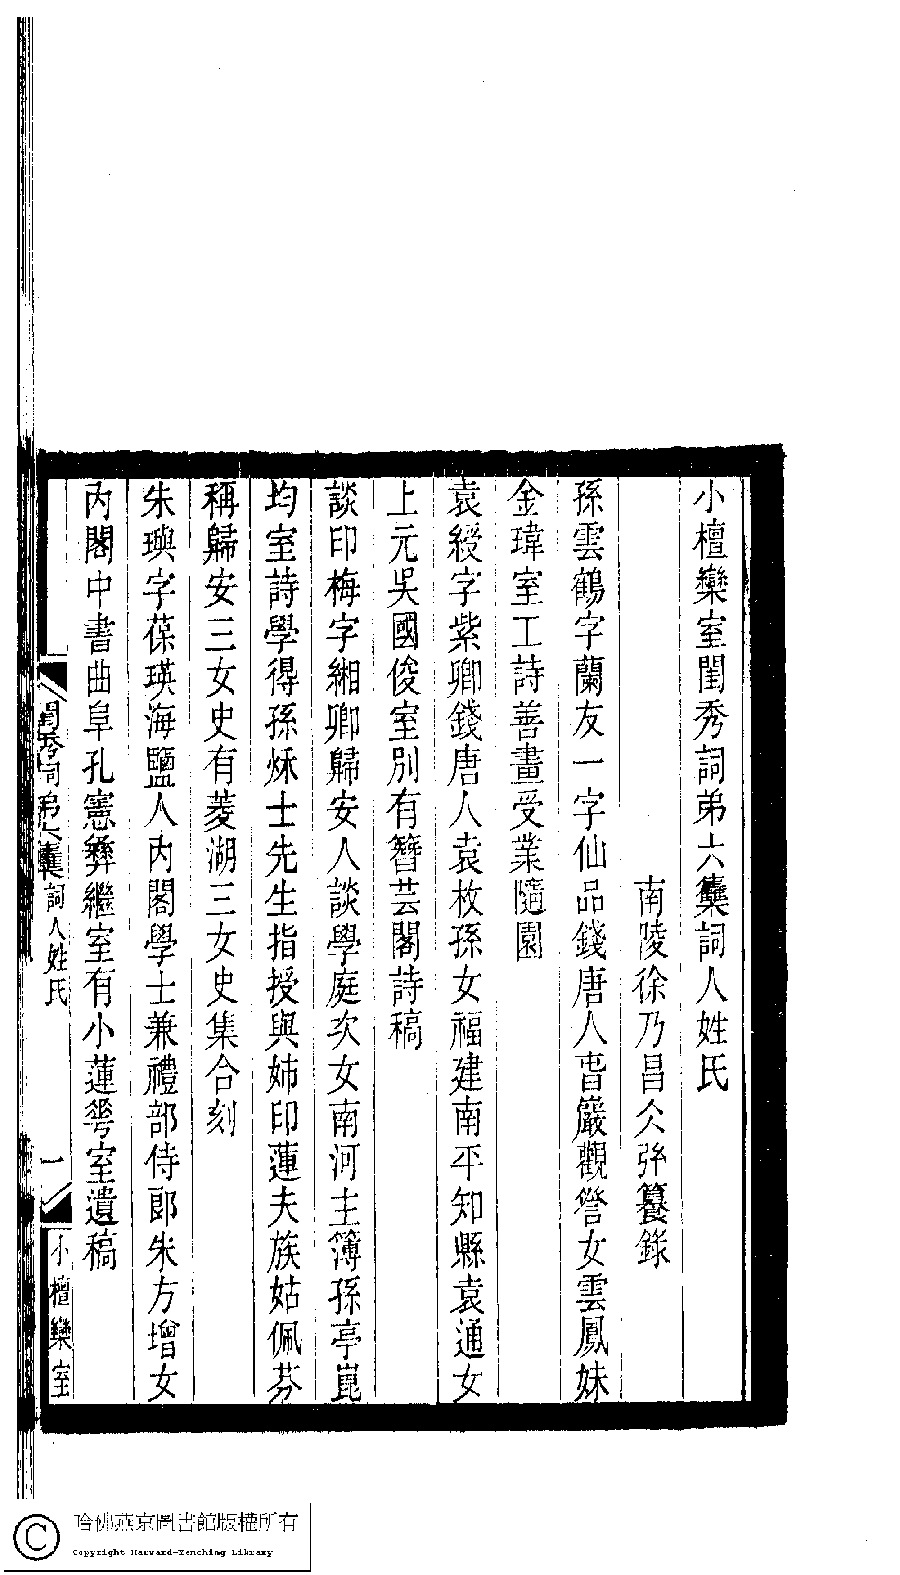 小檀欒室閨秀詞弟六集詞人姓氏
南陵徐乃昌仌弜纂錄
孫雲鶴字蘭友一字仙品錢唐人𡴞嚴觀詧女雲鳳妹
金瑋室工詩善畫受業隨園
袁綬字紫卿錢唐人袁枚孫女福建南平知縣袁通女
上元吳國俊室別有簪芸閣詩稿
談印梅字緗卿歸安人談學庭次女南河主簿孫亭崑
均室詩學得孫秌士先生指授與姊印蓮夫族姑佩芬
稱歸安三女史有菱湖三女史集合刻
朱璵字葆瑛海鹽人內閣學士兼禮部侍郎朱方增女
內閣中書曲阜孔憲彝繼室有小蓮花室遺稿
閨秀詞弟六集詞人姓氏
一
小檀欒室
哈佛燕京圖書館版權所有
Copyright Harvard-Yenching Library